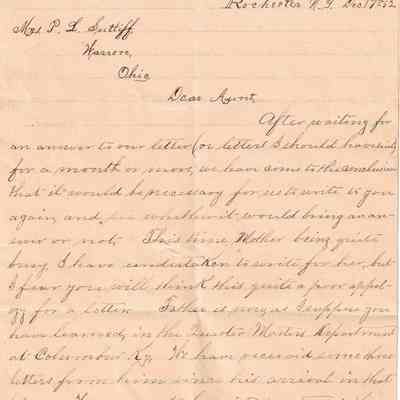 Rochester N. Y. Dec 17th
Mrs P. L. Sutliff.
Warren,
Ohio
Dear Aunt,
After waiting for
an answer to our letter (or letters I should have said)
for a month or more, we have come to the conclusion
that it would be necessary for us to write to you
again, and see whether it would bring an an-
swer or not. This time, Mother being quite
busy, I have undertaken to write for her, but
I fear you will think this quite a poor apol-
ogy for a letter. Father is now, as I suppose you
have learned, in the Quarter Masters Department
at Columbus Ky. We have received some four
letters from him since his arrival in that